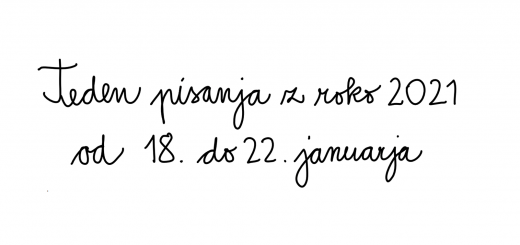 Teden pisanja z roko 2021
od 18. do 22. januarja